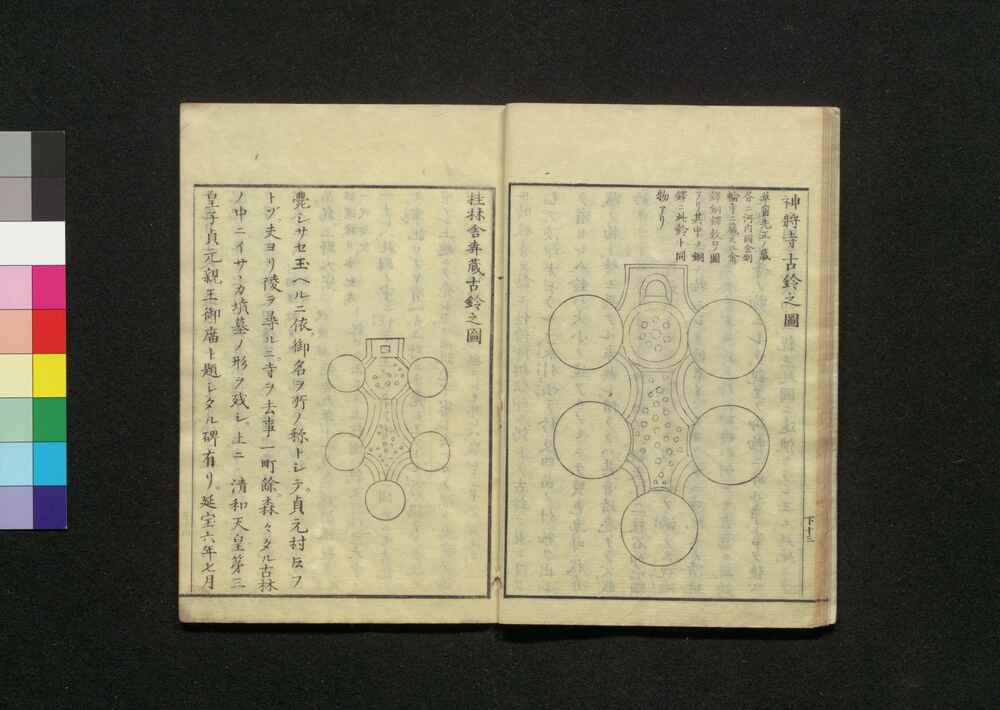 神将寺古鈴之圖
草菌先江ノ蔵
各ニ河内國金剛
輪寺ニ蔵
鐸銅鐸鈴ヲ圖
アリ其中ノ銅
鐸ニ此鈴ト同
物アリ
下十三
桂林舎弆蔵古鈴之圖
薨シサセ玉ヘルニ依御名ヲ所ノ称トシテ貞元村ト云フ
トゾ夫ヨリ陵ヲ尋ルニ寺ヲ去事一町餘森々タル古林
ノ中ニイサヽカ墳墓ノ形ヲ残シ上ニ 清和天皇第三
皇子貞元親王御廟ト題シタル碑有リ。延宝六年七月